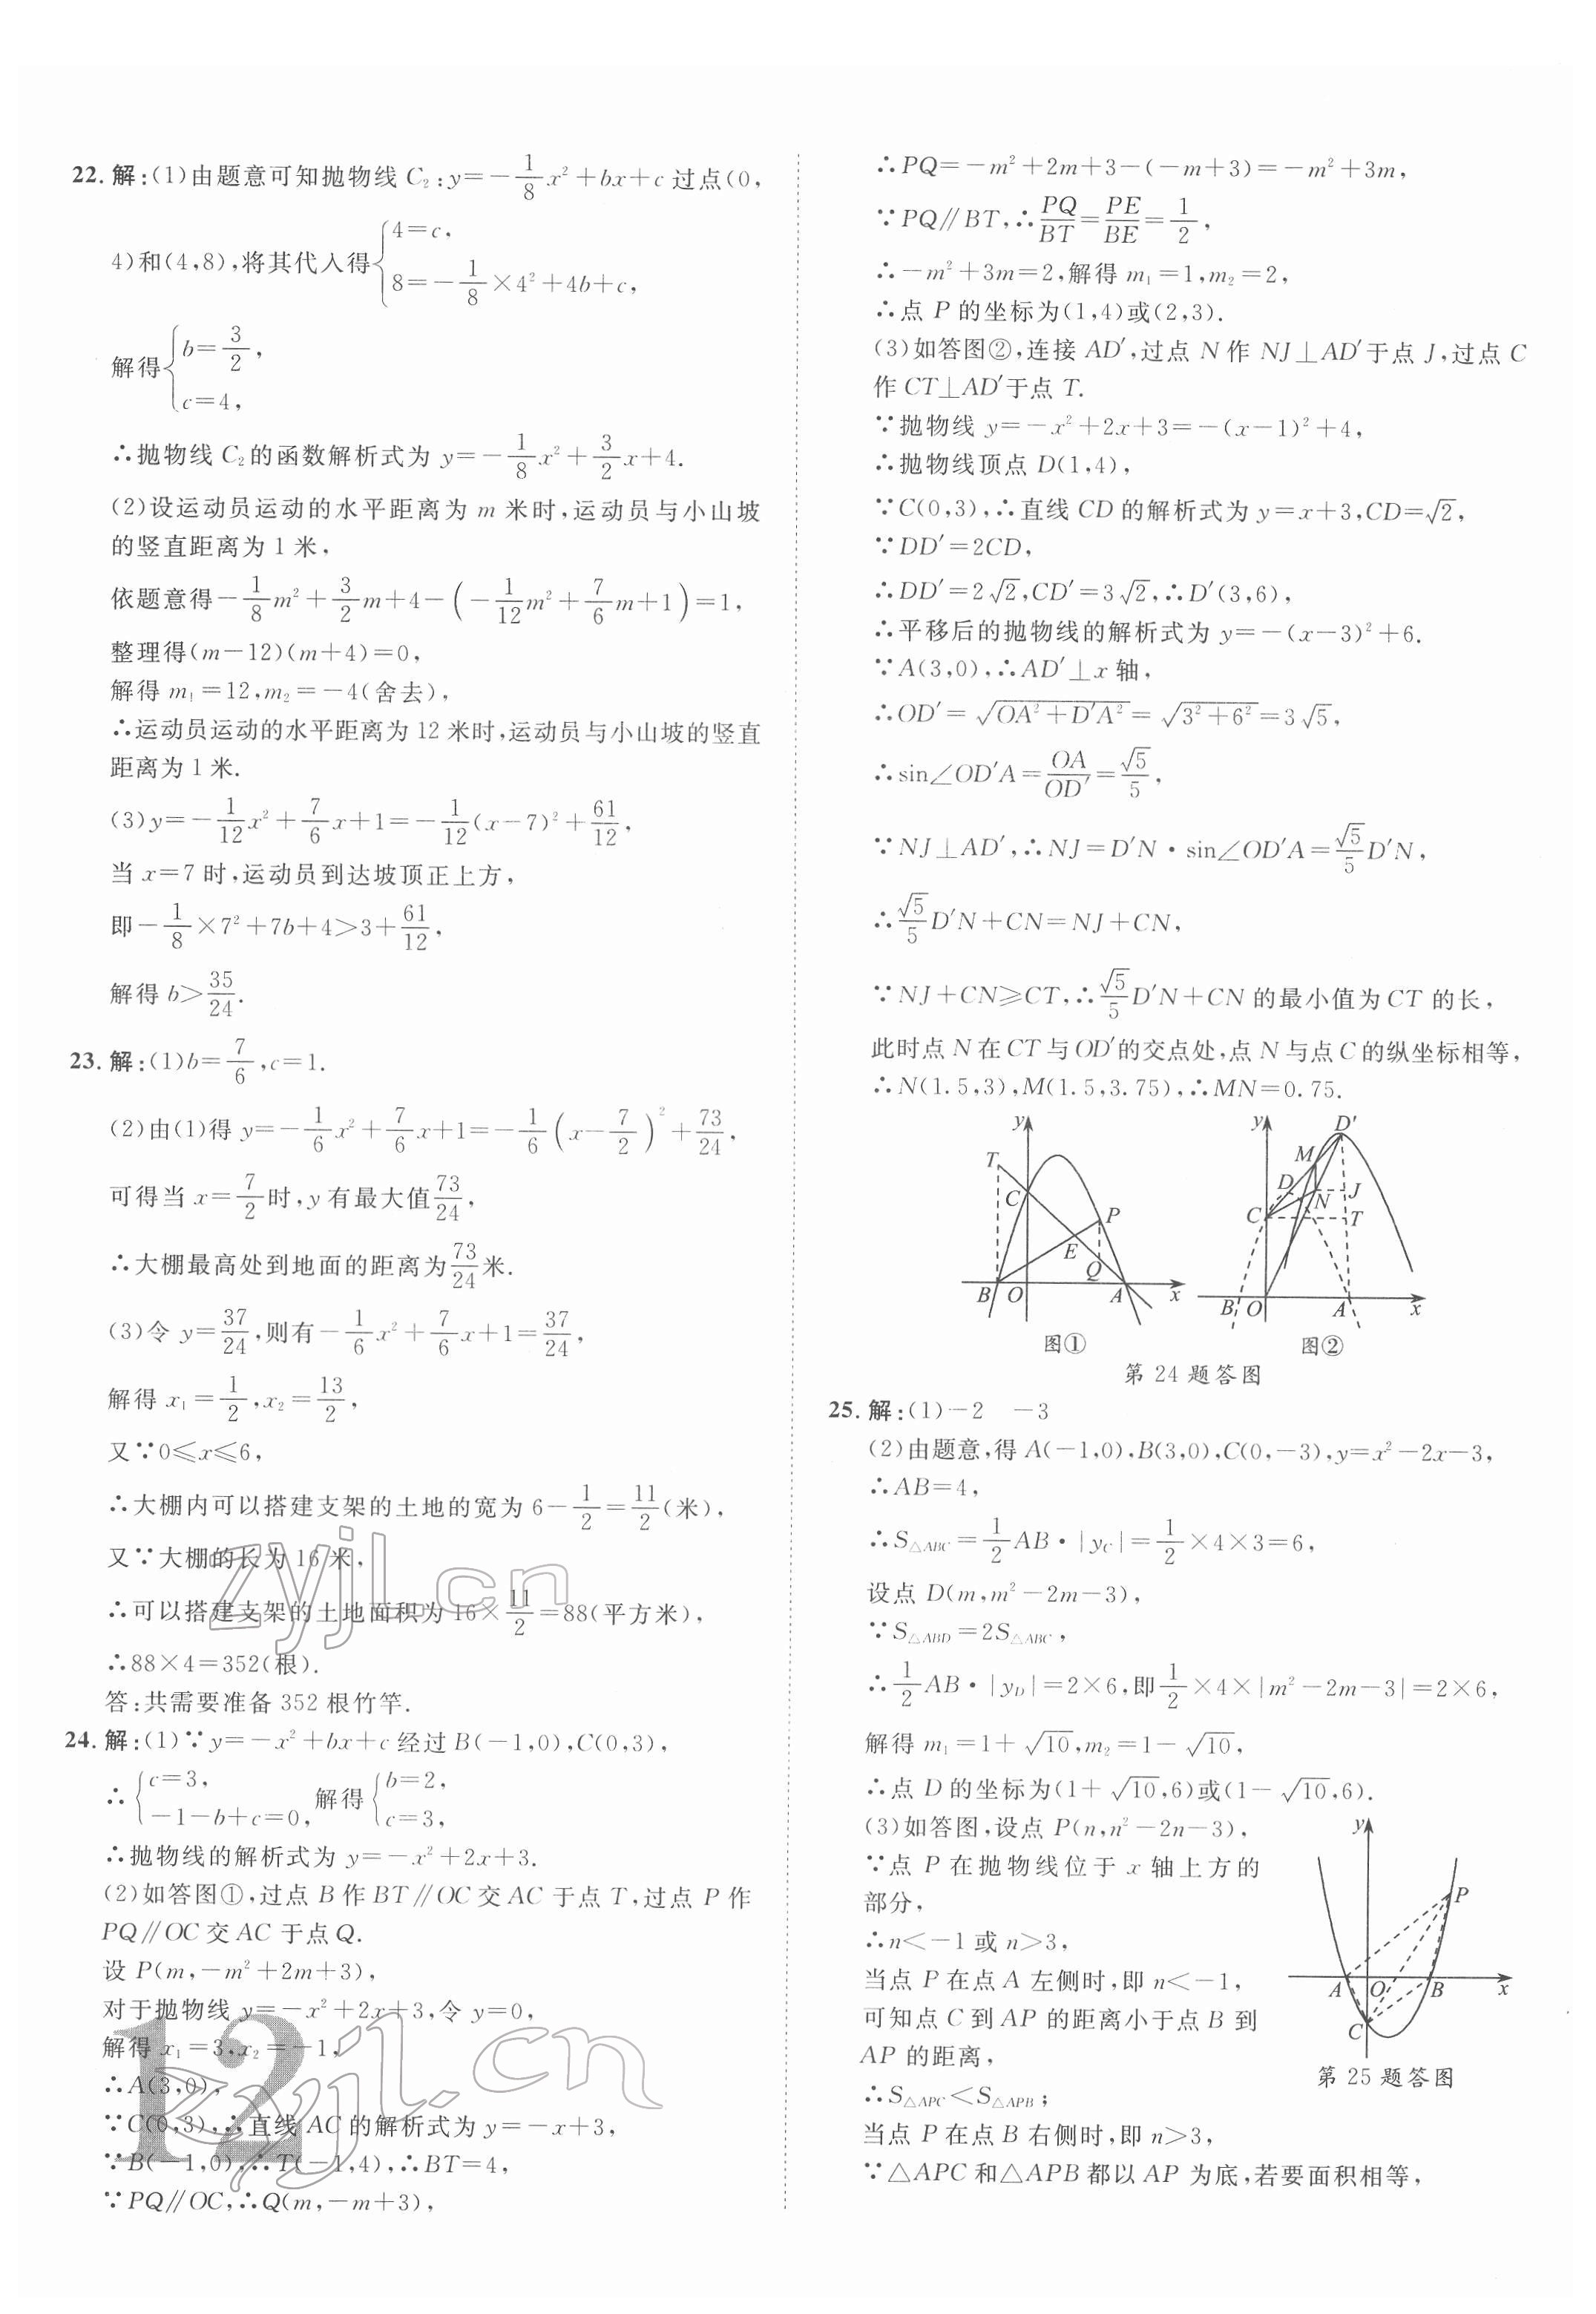 22. 解:(1)由题意可知抛物线 C₂:y=−1/8x²+bx+c 过点(0,
4)和(4,8),将其代入得{4=c, 8=−1/8×4²+4b+c,
解得{b=3/2, c=4,
∴抛物线 C₂的函数解析式为 y=−1/8x²+3/2x+4.
(2)设运动员运动的水平距离为 m 米时,运动员与小山坡
的竖直距离为 1 米,
依题意得−1/8m²+3/2m+4−(−1/12m²+7/6m+1)=1,
整理得(m−12)(m+4)=0,
解得 m₁=12,m₂=−4(舍去),
∴运动员运动的水平距离为 12 米时,运动员与小山坡的竖直
距离为 1 米.
(3)y=−1/12x²+7/6x+1=−1/12(x−7)²+61/12,
当 x=7 时,运动员到达坡顶正上方,
即−1/8×7²+7b+4>3+61/12,
解得 b>35/24.
23. 解:(1)b=7/6,c=1.
(2)由(1)得 y=−1/6x²+7/6x+1=−1/6(x−7/2)²+73/24,
可得当 x=7/2时,y 有最大值73/24,
∴大棚最高处到地面的距离为73/24米.
(3)令 y=37/24,则有−1/6x²+7/6x+1=37/24,
解得 x₁=1/2,x₂=13/2,
又∵0≤x≤6,
∴大棚内可以搭建支架的土地的宽为 6−1/2=11/2(米),
又∵大棚的长为 16 米,
∴可以搭建支架的土地面积为 16×11/2=88(平方米),
∴88×4=352(根).
答:共需要准备 352 根竹竿.
24. 解:(1)∵y=−x²+bx+c 经过 B(−1,0),C(0,3),
∴{c=3, −1−b+c=0, 解得{b=2, c=3,
∴抛物线的解析式为 y=−x²+2x+3.
(2)如答图①,过点 B 作 BT∥OC 交 AC 于点 T,过点 P 作
PQ∥OC 交 AC 于点 Q.
设 P(m,−m²+2m+3),
对于抛物线 y=−x²+2x+3,令 y=0,
解得 x₁=3,x₂=−1,
∴A(3,0),
∵C(0,3),∴直线 AC 的解析式为 y=−x+3,
∵B(−1,0),∴T(−1,4),∴BT=4,
∵PQ∥OC,∴Q(m,−m+3),
12
zyjl.cn
zyjl.cn
∴PQ=−m²+2m+3−(−m+3)=−m²+3m,
∵PQ∥BT,∴PQ/BT=PE/BE=1/2,
∴−m²+3m=2,解得 m₁=1,m₂=2,
∴点 P 的坐标为(1,4)或(2,3).
(3)如答图②,连接 AD′,过点 N 作 NJ⊥AD′于点 J,过点 C
作 CT⊥AD′于点 T.
∵抛物线 y=−x²+2x+3=−(x−1)²+4,
∴抛物线顶点 D(1,4),
∵C(0,3),∴直线 CD 的解析式为 y=x+3,CD=√2,
∵DD′=2CD,
∴DD′=2√2,CD′=3√2,∴D′(3,6),
∴平移后的抛物线的解析式为 y=−(x−3)²+6.
∵A(3,0),∴AD′⊥x 轴,
∴OD′=√(OA²+D′A²)=√(3²+6²)=3√5,
∴sin∠OD′A=OA/OD′=√5/5,
∵NJ⊥AD′,∴NJ=D′N·sin∠OD′A=√5/5D′N,
∴√5/5D′N+CN=NJ+CN,
∵NJ+CN≥CT,∴√5/5D′N+CN 的最小值为 CT 的长,
此时点 N 在 CT 与 OD′的交点处,点 N 与点 C 的纵坐标相等,
∴N(1.5,3),M(1.5,3.75),∴MN=0.75.
y T C P E Q B O A x
y D′ M D N J C T B O A x
图① 图②
第 24 题答图
25. 解:(1)−2 −3
(2)由题意,得 A(−1,0),B(3,0),C(0,−3),y=x²−2x−3,
∴AB=4,
∴S△ABC=1/2AB·|yC|=1/2×4×3=6,
设点 D(m,m²−2m−3),
∵S△ABD=2S△ABC,
∴1/2AB·|yD|=2×6,即1/2×4×|m²−2m−3|=2×6,
解得 m₁=1+√10,m₂=1−√10,
∴点 D 的坐标为(1+√10,6)或(1−√10,6).
(3)如答图,设点 P(n,n²−2n−3),
∵点 P 在抛物线位于 x 轴上方的
部分,
∴n<−1 或 n>3,
当点 P 在点 A 左侧时,即 n<−1,
可知点 C 到 AP 的距离小于点 B 到
AP 的距离,
∴S△APC<S△APB;
当点 P 在点 B 右侧时,即 n>3,
∵△APC 和△APB 都以 AP 为底,若要面积相等,
y P A O B x C
第 25 题答图